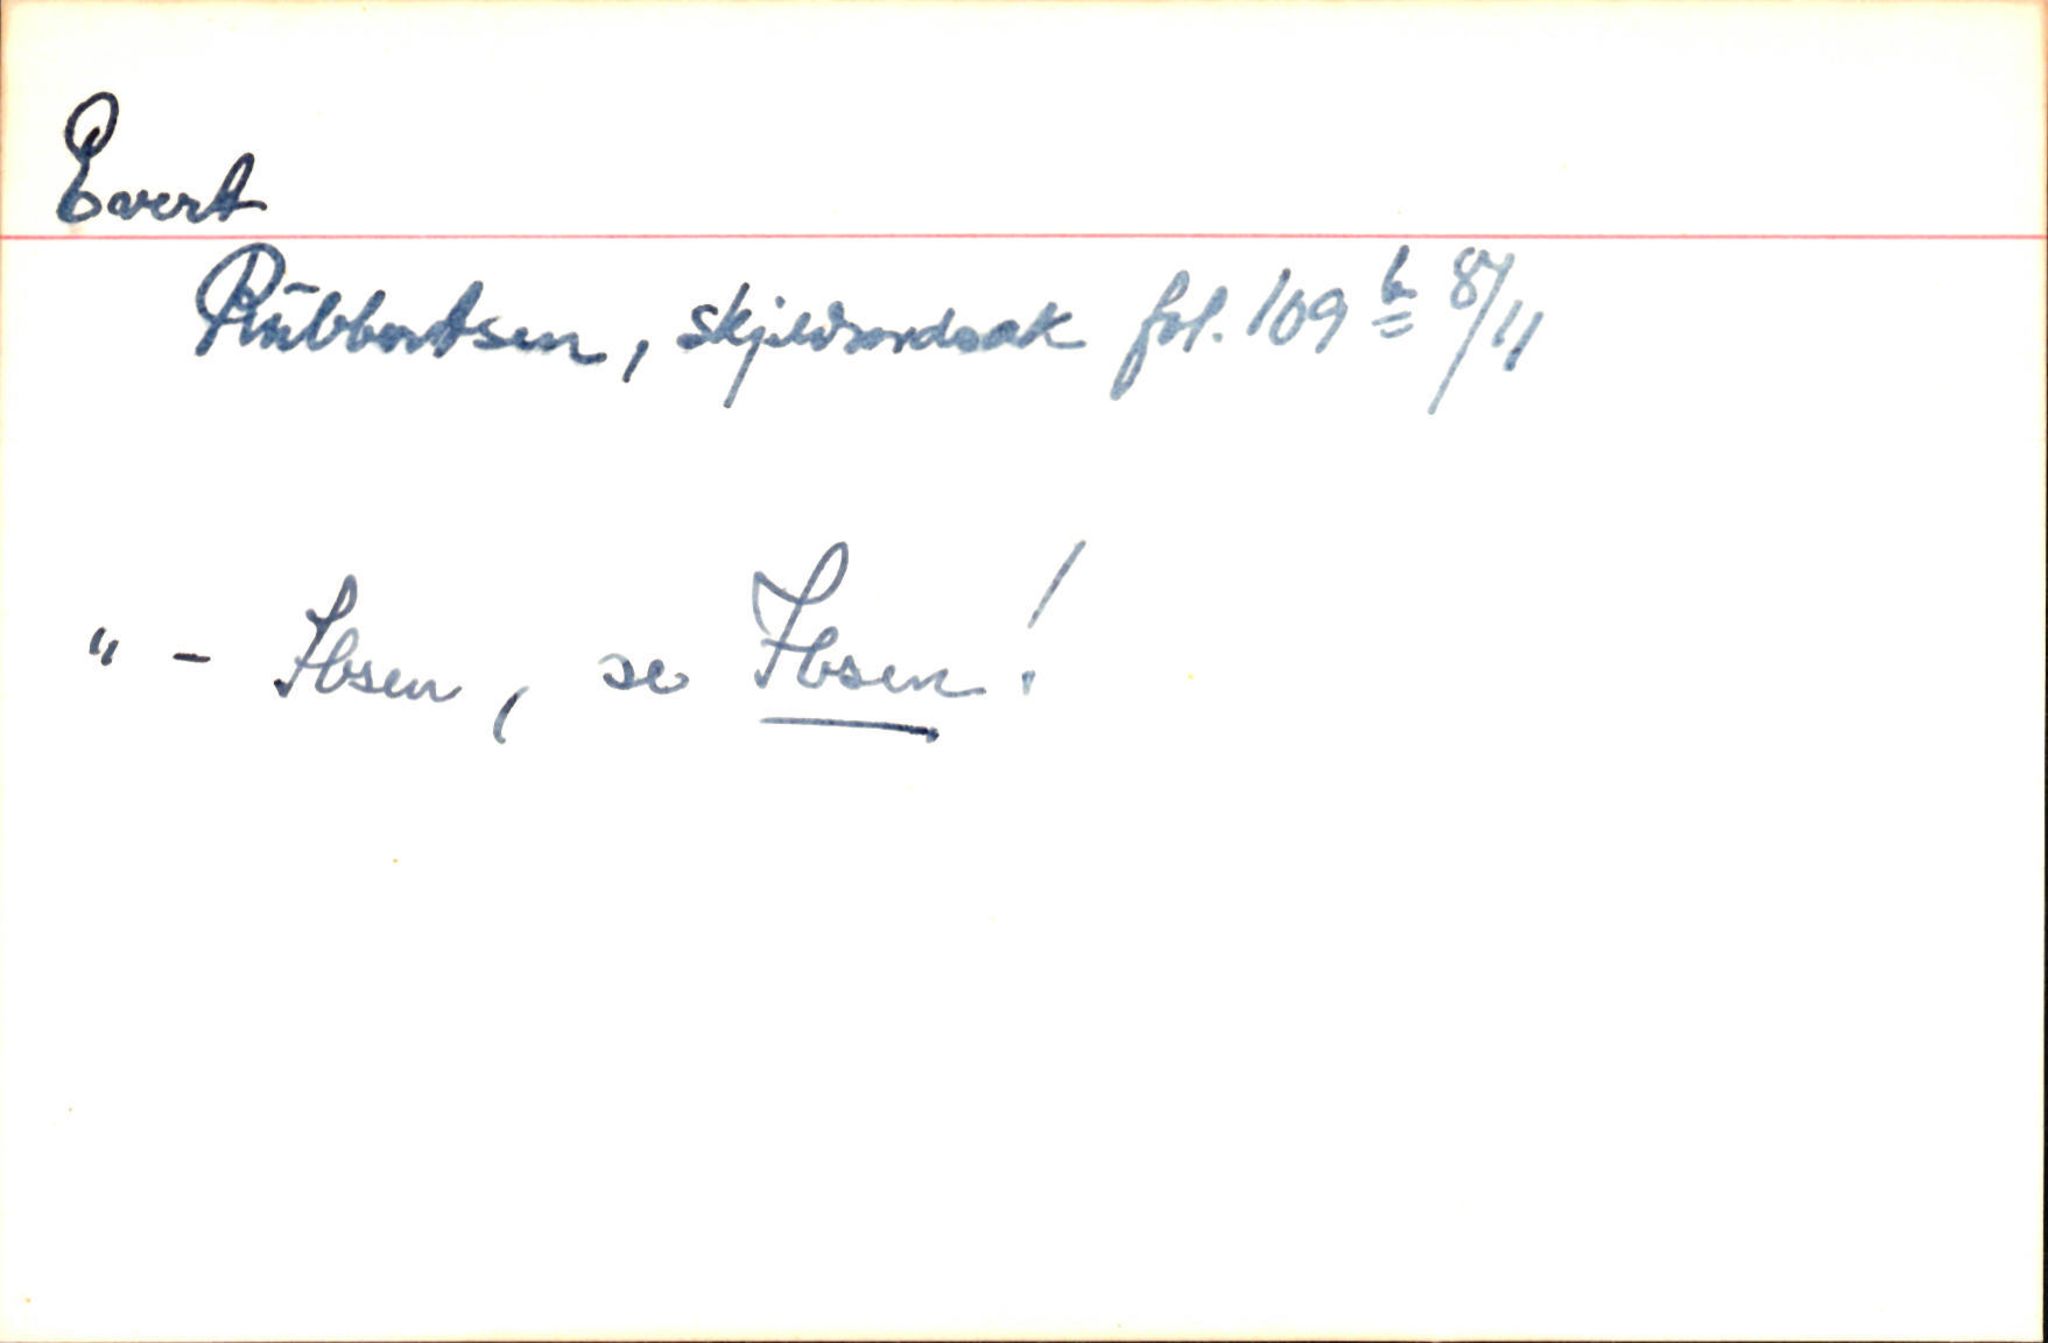 Evert
Rübbertsen, skjeldsordsak fol. 109 b 8/11
" - Ibsen, se Ibsen!